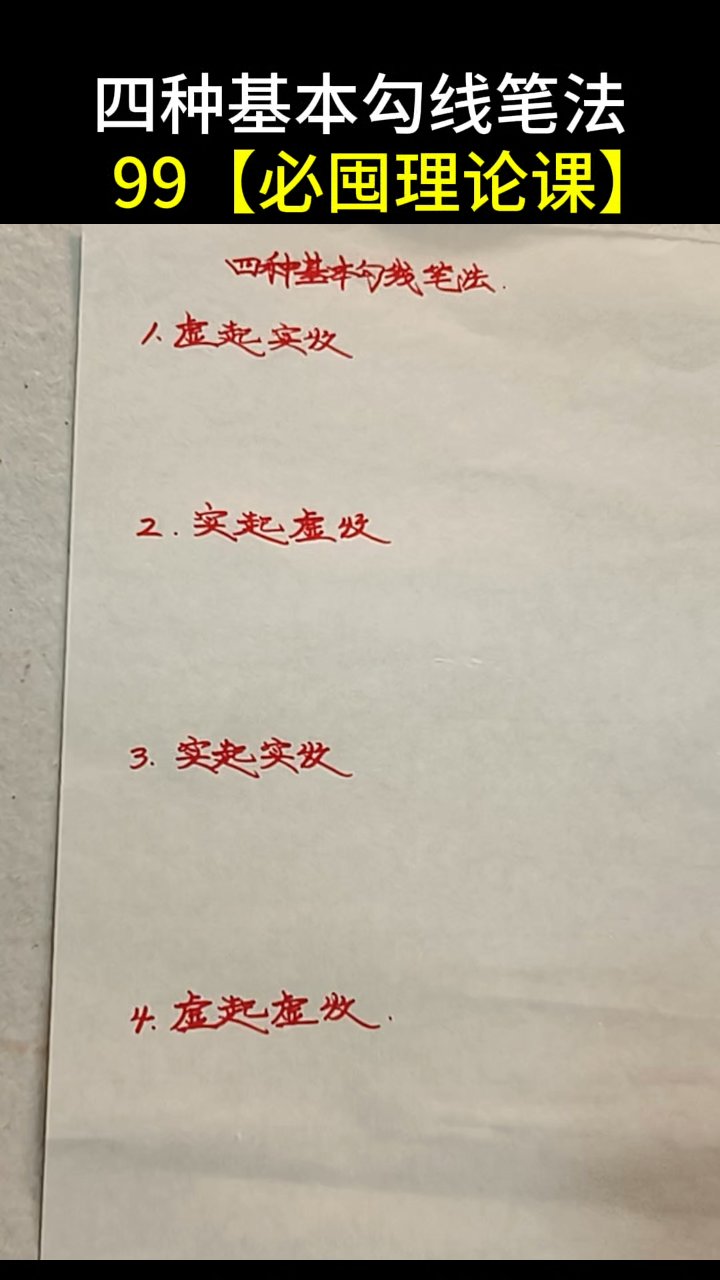 四种基本勾线笔法
99【必囤理论课】
四种基本勾线笔法.
1.虚起实收
2.实起虚收
3.实起实收
4.虚起虚收.